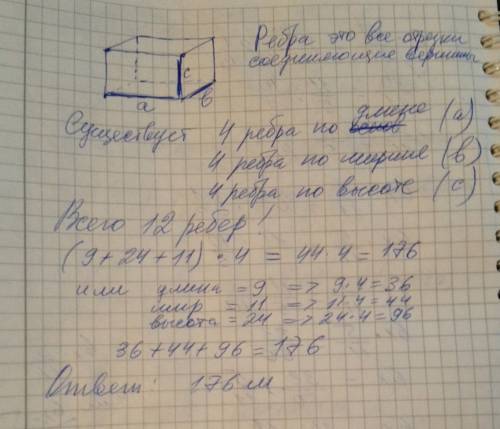 Ребра это все отрезки
соединяющие вершины
c
a
в
Существует 4 ребра по длине (a)
4 ребра по ширине (в)
4 ребра по высоте (c)
Всего 12 ребер!
(9+24+11)·4 = 44·4 = 176
или длина = 9 => 9·4=36
шир = 11 => 11·4=44
высота = 24 => 24·4=96
36+44+96=176
Ответ: 176 м